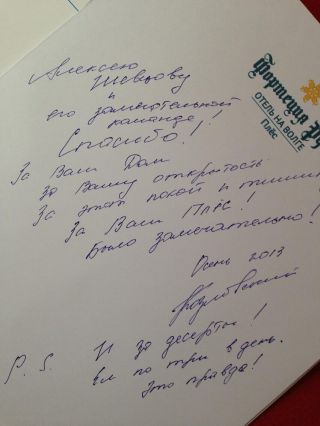 Алексею
Шевцову
и
его замечательной
команде!
Спасибо!!
За Ваш Дом
За Вашу открытость
За этот покой и тишину
За Ваш Плёс!
Было замечательно!
Осень 2013
P. S. И за десерты!
Ел по три в день.
Это правда!
Фортеция
ОТЕЛЬ НА ВОЛГЕ
Плёс